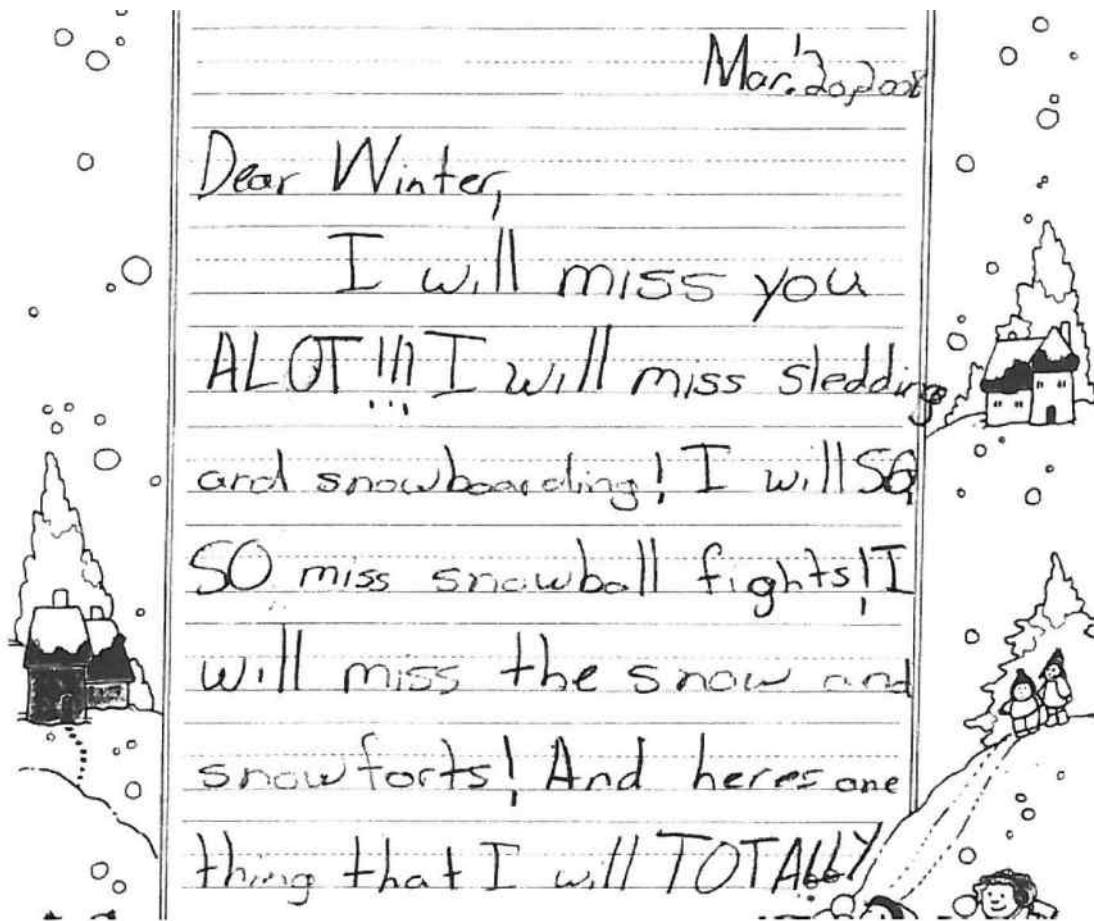 Mar. 20, 2008
Dear Winter,
I will miss you
ALOT!!! I will miss sledding
and snowboarding! I will SO,
SO miss snowball fights! I
will miss the snow and
snow forts! And heres one
thing that I will TOTALLY